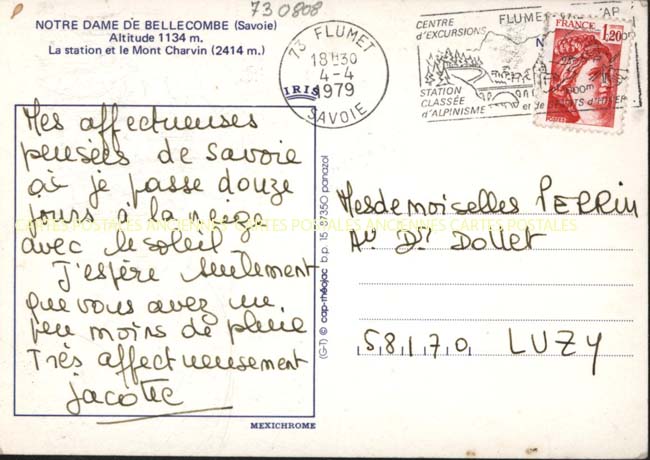 730808
NOTRE DAME DE BELLECOMBE (Savoie)
Altitude 1134 m.
La station et le Mont Charvin (2414 m.)
73 FLUMET
18H30
4-4
1979
SAVOIE
IRIS
CENTRE
D'EXCURSIONS
FLUMET
STATION
CLASSÉE
D'ALPINISME
et de
FRANCE
1,20
POSTES
Mes affectueuses
pensées de Savoie
où je passe douze
jours à la neige
avec le soleil
J'espère seulement
que vous avez un
peu moins de pluie
Très affectueusement
Jacotte
MEXICHROME
(G-T) © cap-théojac b.p. 15 87350 panazol
Mesdemoiselles PERRIN
Av Dr Dollet
58170 LUZY
CARTES POSTALES ANCIENNES CARTES POSTALES ANCIENNES CARTES POSTALES